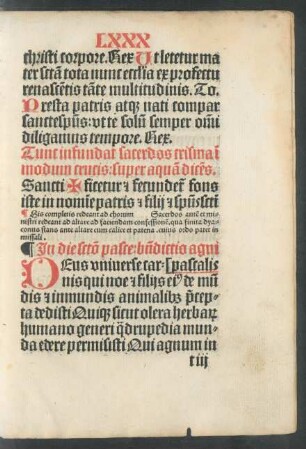 LXXX
christi corpore. Rex Ut letetur ma
ter scta tota nunc ecclia ex profectu
renascentis tāte multitudinis. To.
Presta patris atqꝫ nati compar
sancte sp̄us: vt te solū semper om̄i
diligamus tempore. Rex.
Tunc infundat sacerdos crisma ī
modum crucis: super aquā dicēs.
Sancti ✠ ficetur ⁊ fecundet᷑ fons
iste in nomīe patris ⁊ filij ⁊ sp̄ussctī
¶ His completis redeant ad chorum Sacerdos autē et mi
nistri redeant ad altare ad faciendam confessionē, qua finita dya
conus stans ante altare cum calice et patena .cuius ordo patet in
missali.
¶ In die sctō pasce: bn̄dictio agni
DEus vniverse car- [pastalis
nis qui noe ⁊ filijs eiꝰ de mū
dis ⁊ inmundis animalibꝫ p̄cep
ta dedisti Quiqꝫ sicut olera herbaꝝ
humano generi q̄drupedia mun
da edere permisisti Qui agnum in
t iij